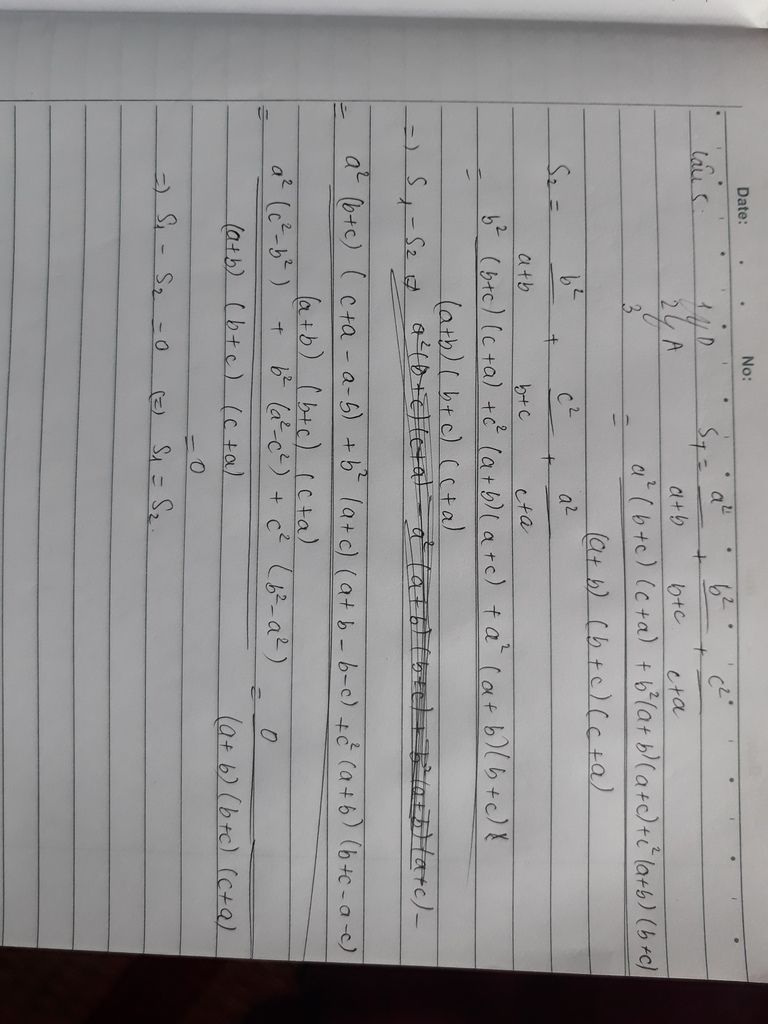 Date: No:
Câu 5. 1/ D
2/ A
3/
S₁ = a²/(a+b) + b²/(b+c) + c²/(c+a)
= a²(b+c)(c+a) + b²(a+b)(a+c) + c²(a+b)(b+c)
(a+b)(b+c)(c+a)
S₂ = b²/(a+b) + c²/(b+c) + a²/(c+a)
= b²(b+c)(c+a) + c²(a+b)(a+c) + a²(a+b)(b+c)
(a+b)(b+c)(c+a)
=) S₁ - S₂
= a²(b+c)(c+a-a-b) + b²(a+c)(a+b-b-c) + c²(a+b)(b+c-a-c)
(a+b)(b+c)(c+a)
= a²(c²-b²) + b²(a²-c²) + c²(b²-a²) = 0
(a+b)(b+c)(c+a) (a+b)(b+c)(c+a)
= 0
=) S₁ - S₂ = 0 (=) S₁ = S₂.